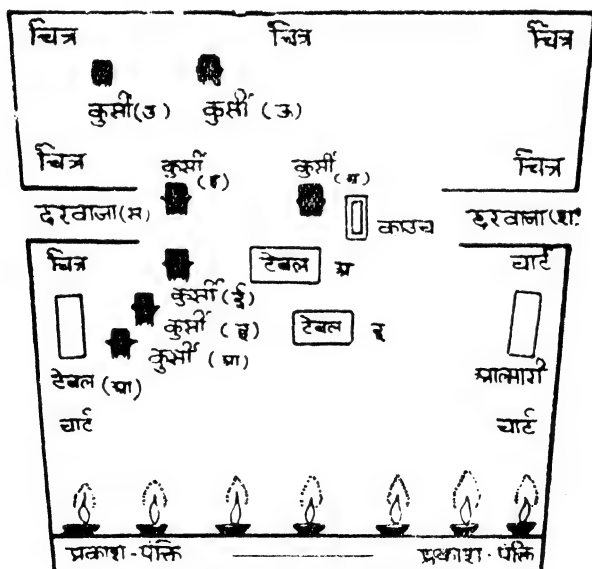 चित्र चित्र चित्र
कुर्सी (उ) कुर्सी (ऊ)
चित्र कुर्सी कुर्सी चित्र
दरवाजा (अ) काउच दरवाजा (आ)
चित्र टेबल अ चार्ट
कुर्सी (ई)
कुर्सी (इ) टेबल इ
कुर्सी (आ)
टेबल (आ) आल्मारी
चार्ट चार्ट
प्रकाश-पंक्ति प्रकाश-पंक्ति